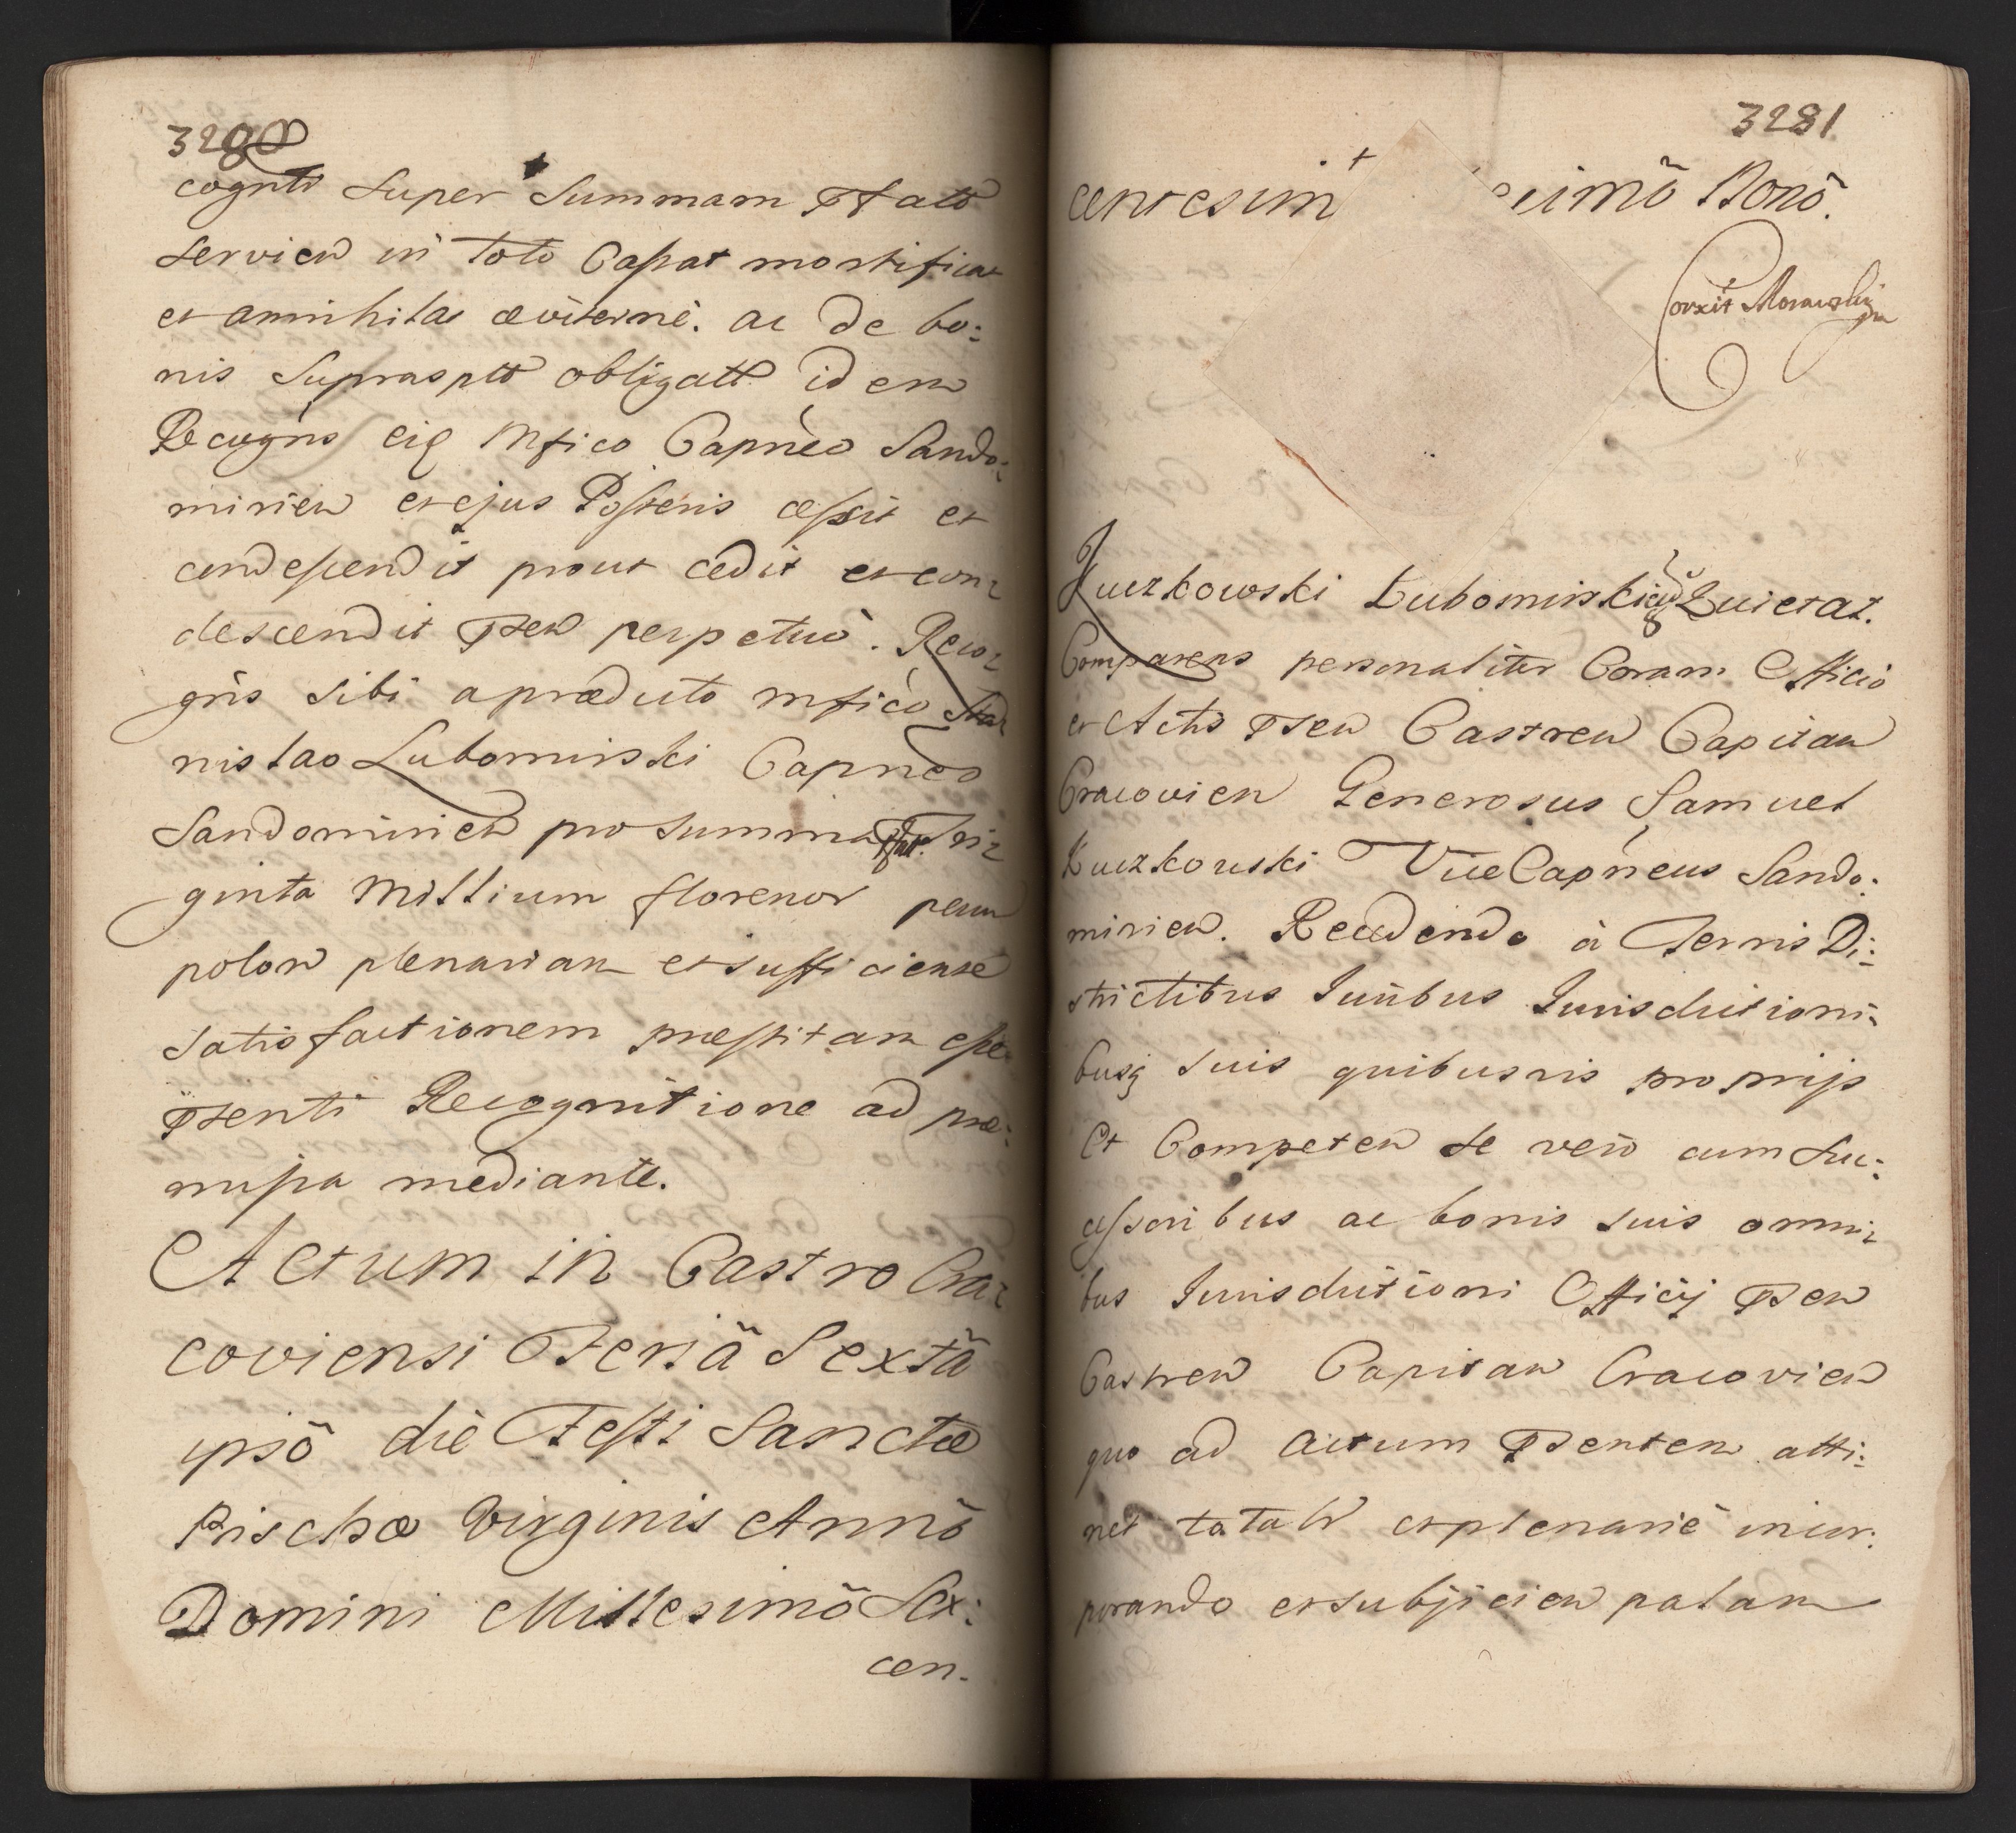 3280
cognti super Summam Pfatt
servien in toto Cassat mortificat
et annihilat æviternè. ac de bo:
nis Supraspttt obligatt idem
Recogns eiq Mfico Capneo Sando:
mirien et ejus Posteris cessit et
condescendit prout cedit et con:
descendit Psen perpetuò. Reco:
gns sibi a præducto Mfico Sta:
nislao Lubomirski Capneo
Sandomirien pro Summa Pfatt. Tri:
ginta Millium florenor pecun
polon plenariam et sufficiente
Satisfactionem præstitam esse
Psenti Recognitione ad præ:
missa mediante.
Actum in Castro Cra:
coviensi Feriâ Sextâ
ipsô die Festi Sanctæ
Priscæ Virginis Annô
Domini Millesimô Sex:
cen.
3281
centesim + simô Nonô.
Corxit Morawski
Kuczkowski Lubomirski Quietat.
Comparens personaliter Coram Officio
et Actis Psen Castren Capitan
Cracovien Generosus Samuel
Kuczkowski ViceCapneus Sando:
mirien. Recedendo à Terris Di:
strictibus Juribus Jurisdictioni:
busq suis quibusvis proprijs
Et Competen se vero cum Suc:
cessoribus ac bonis suis omni:
bus Jurisdictioni Officij Psen
Castren Capitan Cracovien
quo ad actum Psentem atti:
net totalr et plenariè incor:
porando et subjicien palam